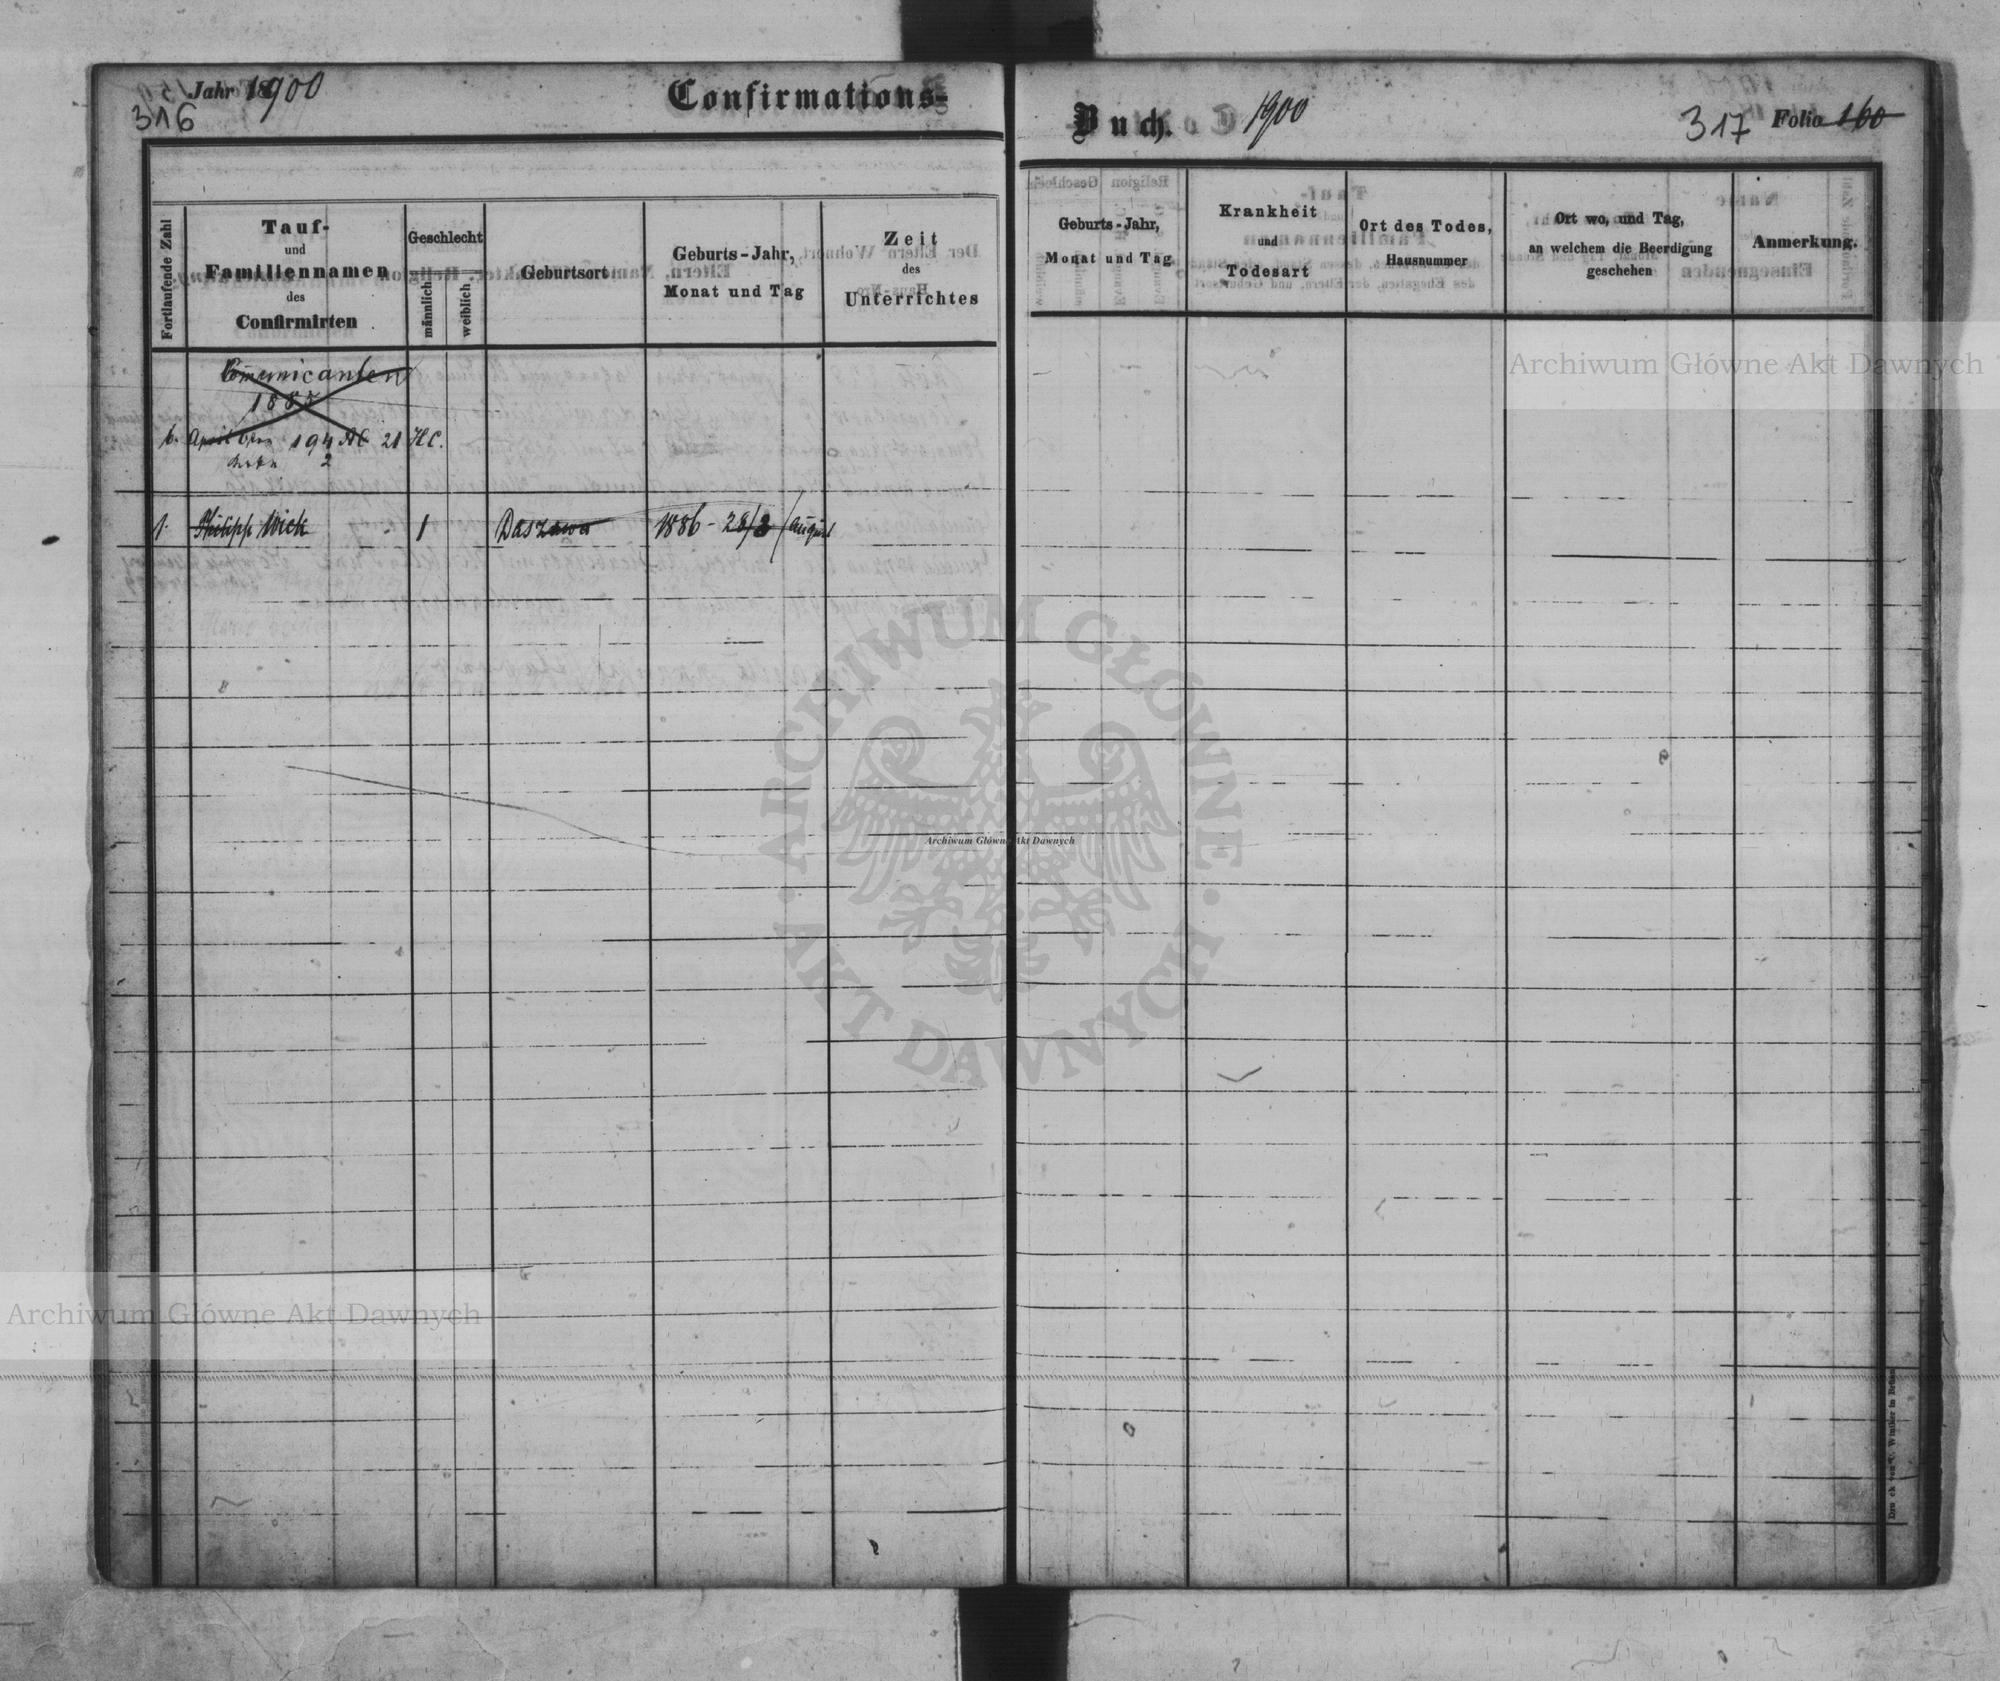 Jahr 1900
316
Confirmations-
Fortlaufende Zahl
Tauf-
und
Familiennamen
des
Confirmirten
Geschlecht
männlich
weiblich
Geburtsort
Geburts-Jahr,
Monat und Tag
Zeit
des
Unterrichtes
Communicanten
1885
6. April 194 Ab 21 H.C.
2
1. Philipp Wick 1 Daszawa 1886 - 28/8 / August
Buch.
1900
317 Folio 160
Geburts-Jahr,
Monat und Tag
Krankheit
und
Todesart
Ort des Todes,
Hausnummer
Ort wo, und Tag,
an welchem die Beerdigung
geschehen
Anmerkung.
Archiwum Główne Akt Dawnych
ARCHIWUM GŁÓWNE AKT DAWNYCH
Archiwum Główne Akt Dawnych
Archiwum Główne Akt Dawnych
Druck von C. Winiker in Brünn